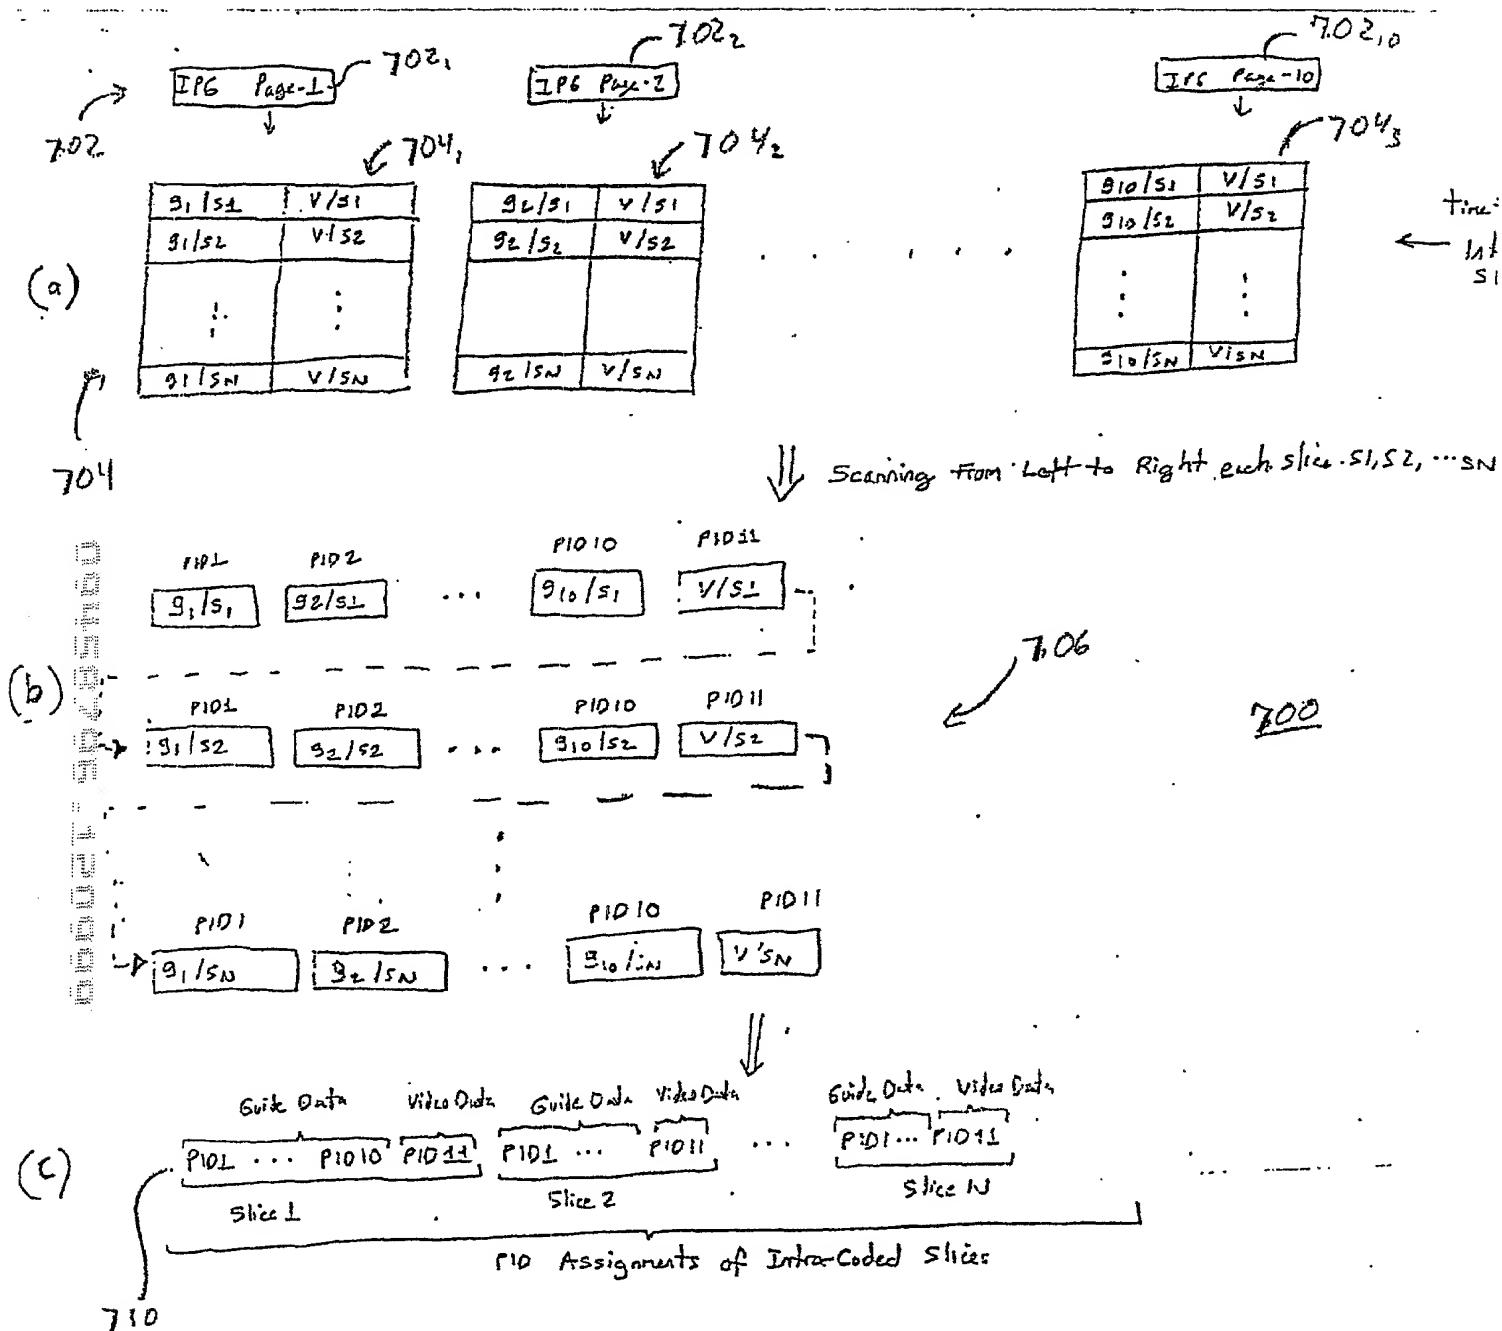 702₁
702₂
702₁₀
IPG Page-1
IPG Page-2
IPG Page-10
702
704₁
704₂
704₃
g1/s1 V/s1
g2/s1 V/s1
g10/s1 V/s1
g1/s2 V/s2
g2/s2 V/s2
g10/s2 V/s2
(a)
g1/sN V/sN
g2/sN V/sN
g10/sN V/sN
704
Scanning From Left to Right each slice S1, S2, ... SN
PID1 PID2 PID10 PID11
g1/s1 g2/s1 ... g10/s1 V/s1
706
(b)
PID1 PID2 PID10 PID11
700
g1/s2 g2/s2 ... g10/s2 V/s2
PID1 PID2 PID10 PID11
g1/sN g2/sN ... g10/sN V/sN
Guide Data Video Data Guide Data Video Data Guide Data Video Data
(c)
PID1 ... PID10 PID11 PID1 ... PID11 ... PID1 ... PID11
Slice 1 Slice 2 Slice N
PID Assignments of Intra-Coded Slices
710